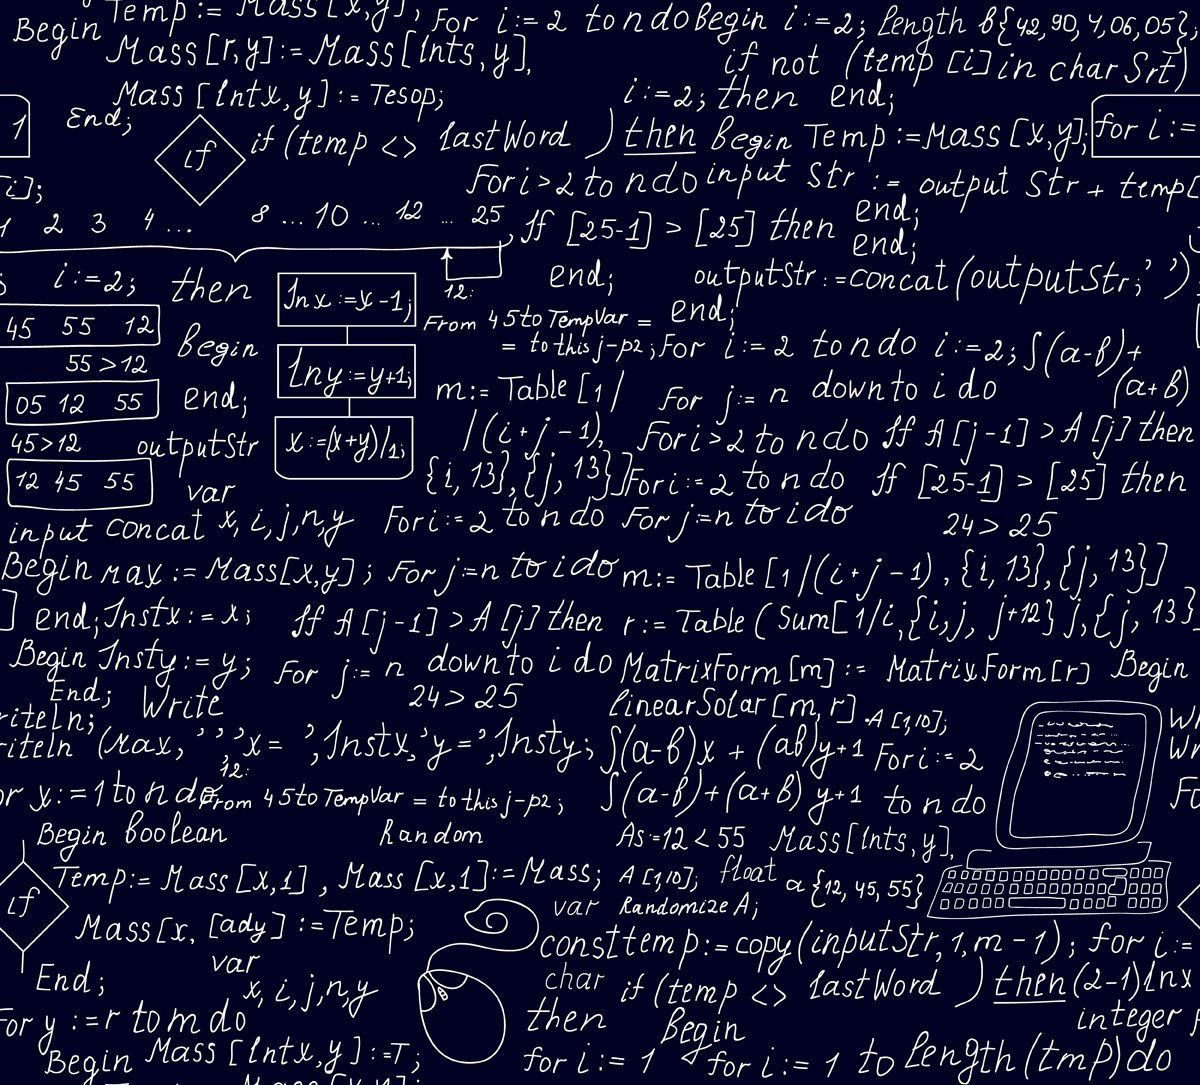 Begin Temp:= Mass[x,y], For i:= 2 to n do Begin i:=2; length b{42, 90, 4, 06, 05};
Mass[r,y]:= Mass[Ints, y], if not (temp [i] in char Srt)
Mass [Intx, y]:= Tesop; i:=2; then end;
1 End; if if (temp <> lastWord ) then Begin Temp :=Mass [x,y]; for i:=
For i>2 to n do input Str := output Str + temp[
[i];
1 2 3 4 ... 8 ... 10 ... 12 ... 25, If [25-1] > [25] then end;
end;
i:=2; then 12: end; outputStr :=concat(outputStr;' ')
Inx :=x-1; From 45 to TempVar = end;
45 55 12 begin = to this j-p2; For i:=2 to n do i:=2; ∫(a-b)+
55>12 Iny:=y+1; m:= Table [1/ For j:= n down to i do (a+b)
05 12 55 end;
45>12 outputStr x:=(x+y)/1; /(i+j-1), For i>2 to n do If A[j-1] >A[j] then
12 45 55 var {i, 13},{j, 13}] For i:=2 to n do If [25-1] > [25] then
input concat x, i, j, n, y For i:=2 to n do For j:=n to i do 24>25
Begin max := Mass[x,y]; For j:=n to i do m:= Table [1/(i+j-1), {i, 13}, {j, 13}]
] end; Instx:= x; If A [j-1] >A [j] then r:= Table (Sum[1/i, {i, j, j+12} j, {j, 13}
Begin Insty:= y; For j:= n down to i do MatrixForm[m]:= MatrixForm[r] Begin
End; Write 24>25 linearSolar[m, r] A [1,10];
riteln;
riteln (Max, ' ', 'x= ', Instx,'y=', Insty; ∫(a-b)x + (ab)y+1 For i:=2
12:
or y:=1 to n do From 45 to TempVar = to this j-p2; ∫(a-b)+(a+b) y+1 to n do
Begin boolean Random As:=12<55 Mass[Ints, y],
if Temp:= Mass [x,1], Mass [x,1]:=Mass; A [1,10]; float a{12, 45, 55}
Mass[x, [ady] :=Temp; var Randomize A;
End; var const temp:= copy(inputStr, 1, m-1); for i:=
x, i, j, n, y char if (temp <> lastWord ) then (2-1) Inx
For y :=r to m do then Begin integer
Begin Mass [Intx,y]:=T; for i:= 1 for i:= 1 to Length(tmp) do